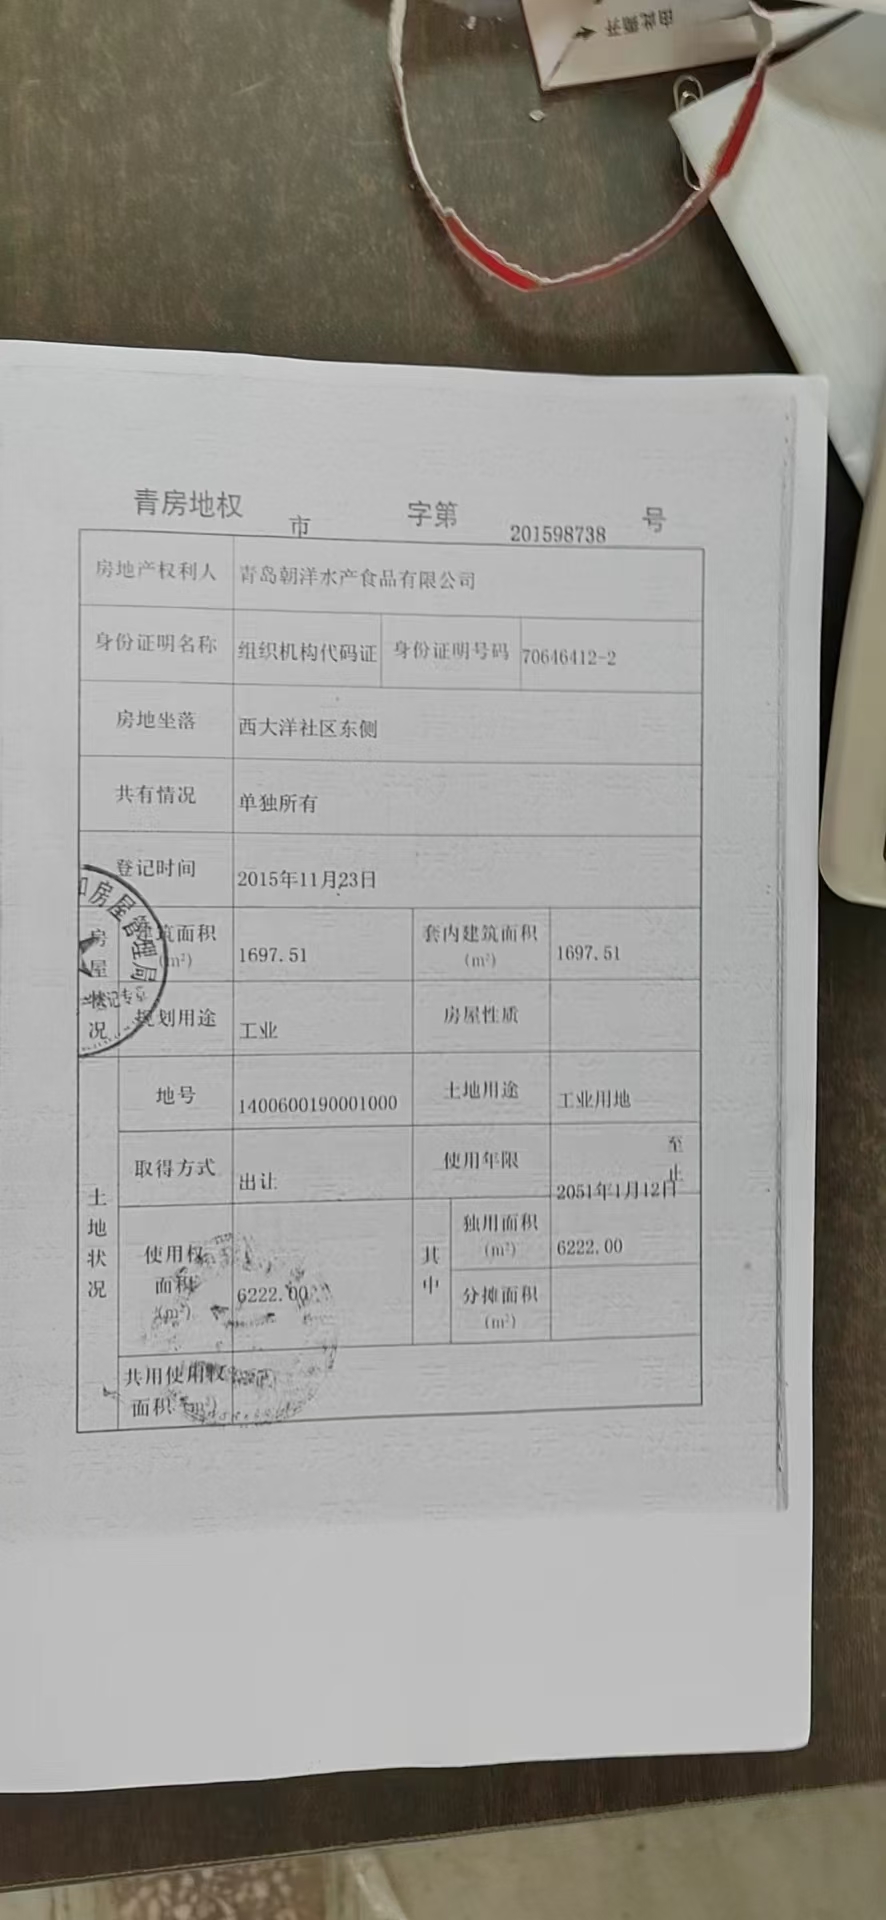 由此撕开
青房地权 市 字第 201598738 号
房地产权利人 青岛朝洋水产食品有限公司
身份证明名称 组织机构代码证 身份证明号码 70646412-2
房地坐落 西大洋社区东侧
共有情况 单独所有
登记时间 2015年11月23日
房屋状况
建筑面积 (m²) 1697.51 套内建筑面积 (m²) 1697.51
规划用途 工业 房屋性质
房屋管理局
登记专
土地状况
地号 1400600190001000 土地用途 工业用地
取得方式 出让 使用年限 至
2051年1月12日 止
使用权面积 (m²) 6222.00 其中 独用面积 (m²) 6222.00
分摊面积 (m²)
共用使用权面积 (m²)